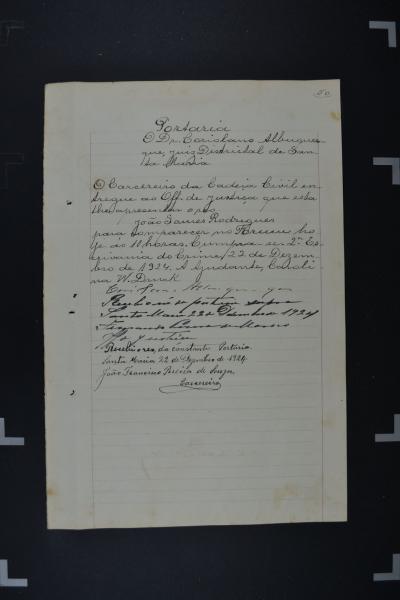 50
Portaria
O Dr. Coriolano Albuquer-
que, juis Districtal de San-
ta Maria
O Carcereiro da Cadeia Civil en-
tregue ao Off. de justiça que esta
lhe apresentar o réo
João Rodrigues
para comparecer no ho
je ás 10 horas. Cumpra-se. 2º Es-
crivania do Crime, 22 de Dezem-
bro de 1924. A Ajudante,
na W.
Recebi a portaria supra
Santa Maria 22 de Dezembro 1924
Fernando
Of. Justiça
Recebi o réo, da constante Portaria.
Santa Maria 22 de Dezembro de 1924.
João Francisco Pereira de Souza
Carcereiro